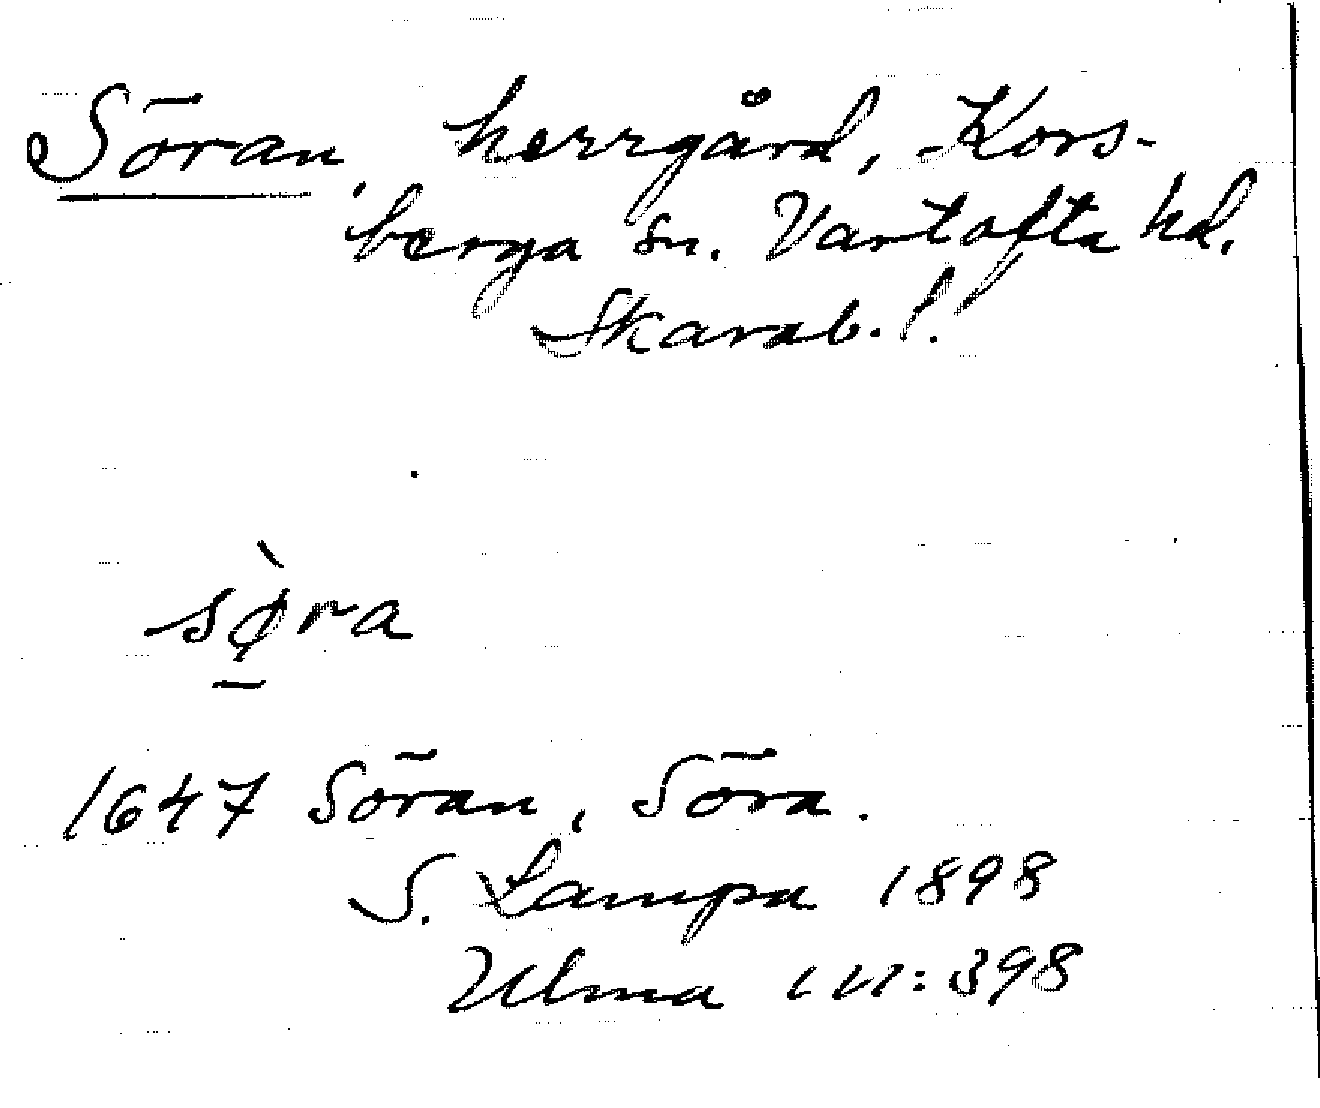 Söran, herrgård, Kors-
berga sn. Vartofta hd.
Skarab. l.
sø̀ra
1647 Söran, Söra.
S. Lampa 1898
Ulma 111:398